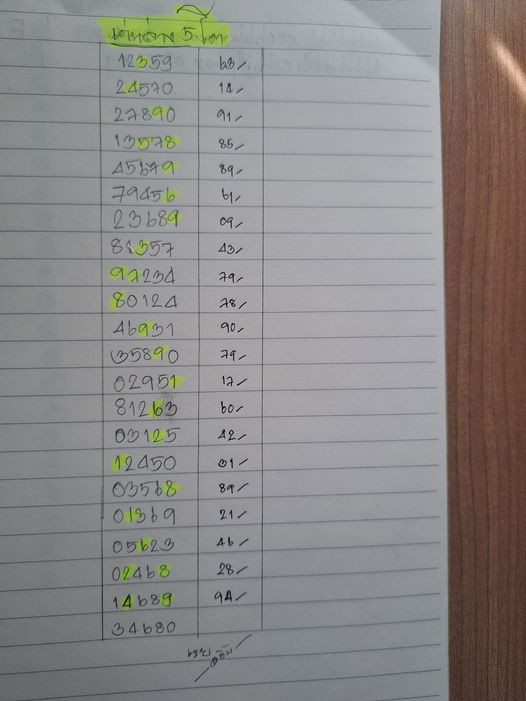 12359 63
24570 14
27890 91
13578 85
45679 89
79456 61
23689 09
81357 43
97234 79
80124 78
46931 90
35890 79
02951 17
81263 60
03125 42
12450 01
03568 89
01369 21
05623 46
02468 28
14689 94
34680